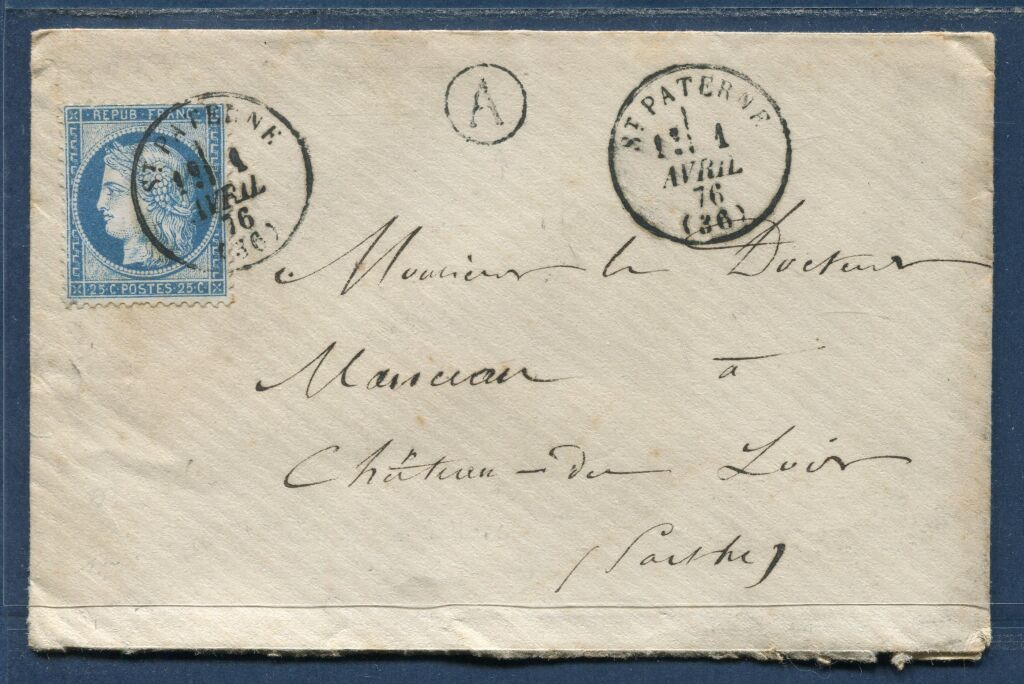 REPUB·FRANC
25·C·POSTES·25·C
ST PATERNE
1
AVRIL
76
(36)
A
ST PATERNE
1
AVRIL
76
(36)
Monsieur le Docteur
à
Château-du Loir
(Sarthe)